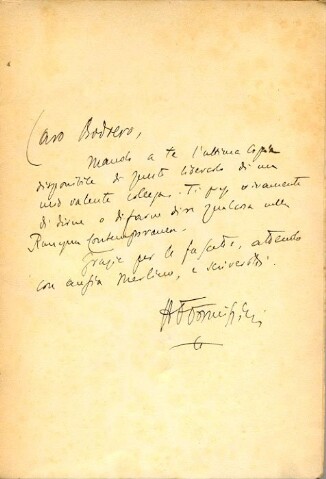 Caro Bodrero,
Mando a te l'ultima copia
disponibile di questo libercolo di un
mio valente collega. Ti prego vivamente
di dirne o di farne dire qualcosa nella
Rassegna Contemporanea.
Grazie per le fascette, attendo
con ansia Merlino, e scriverotti.